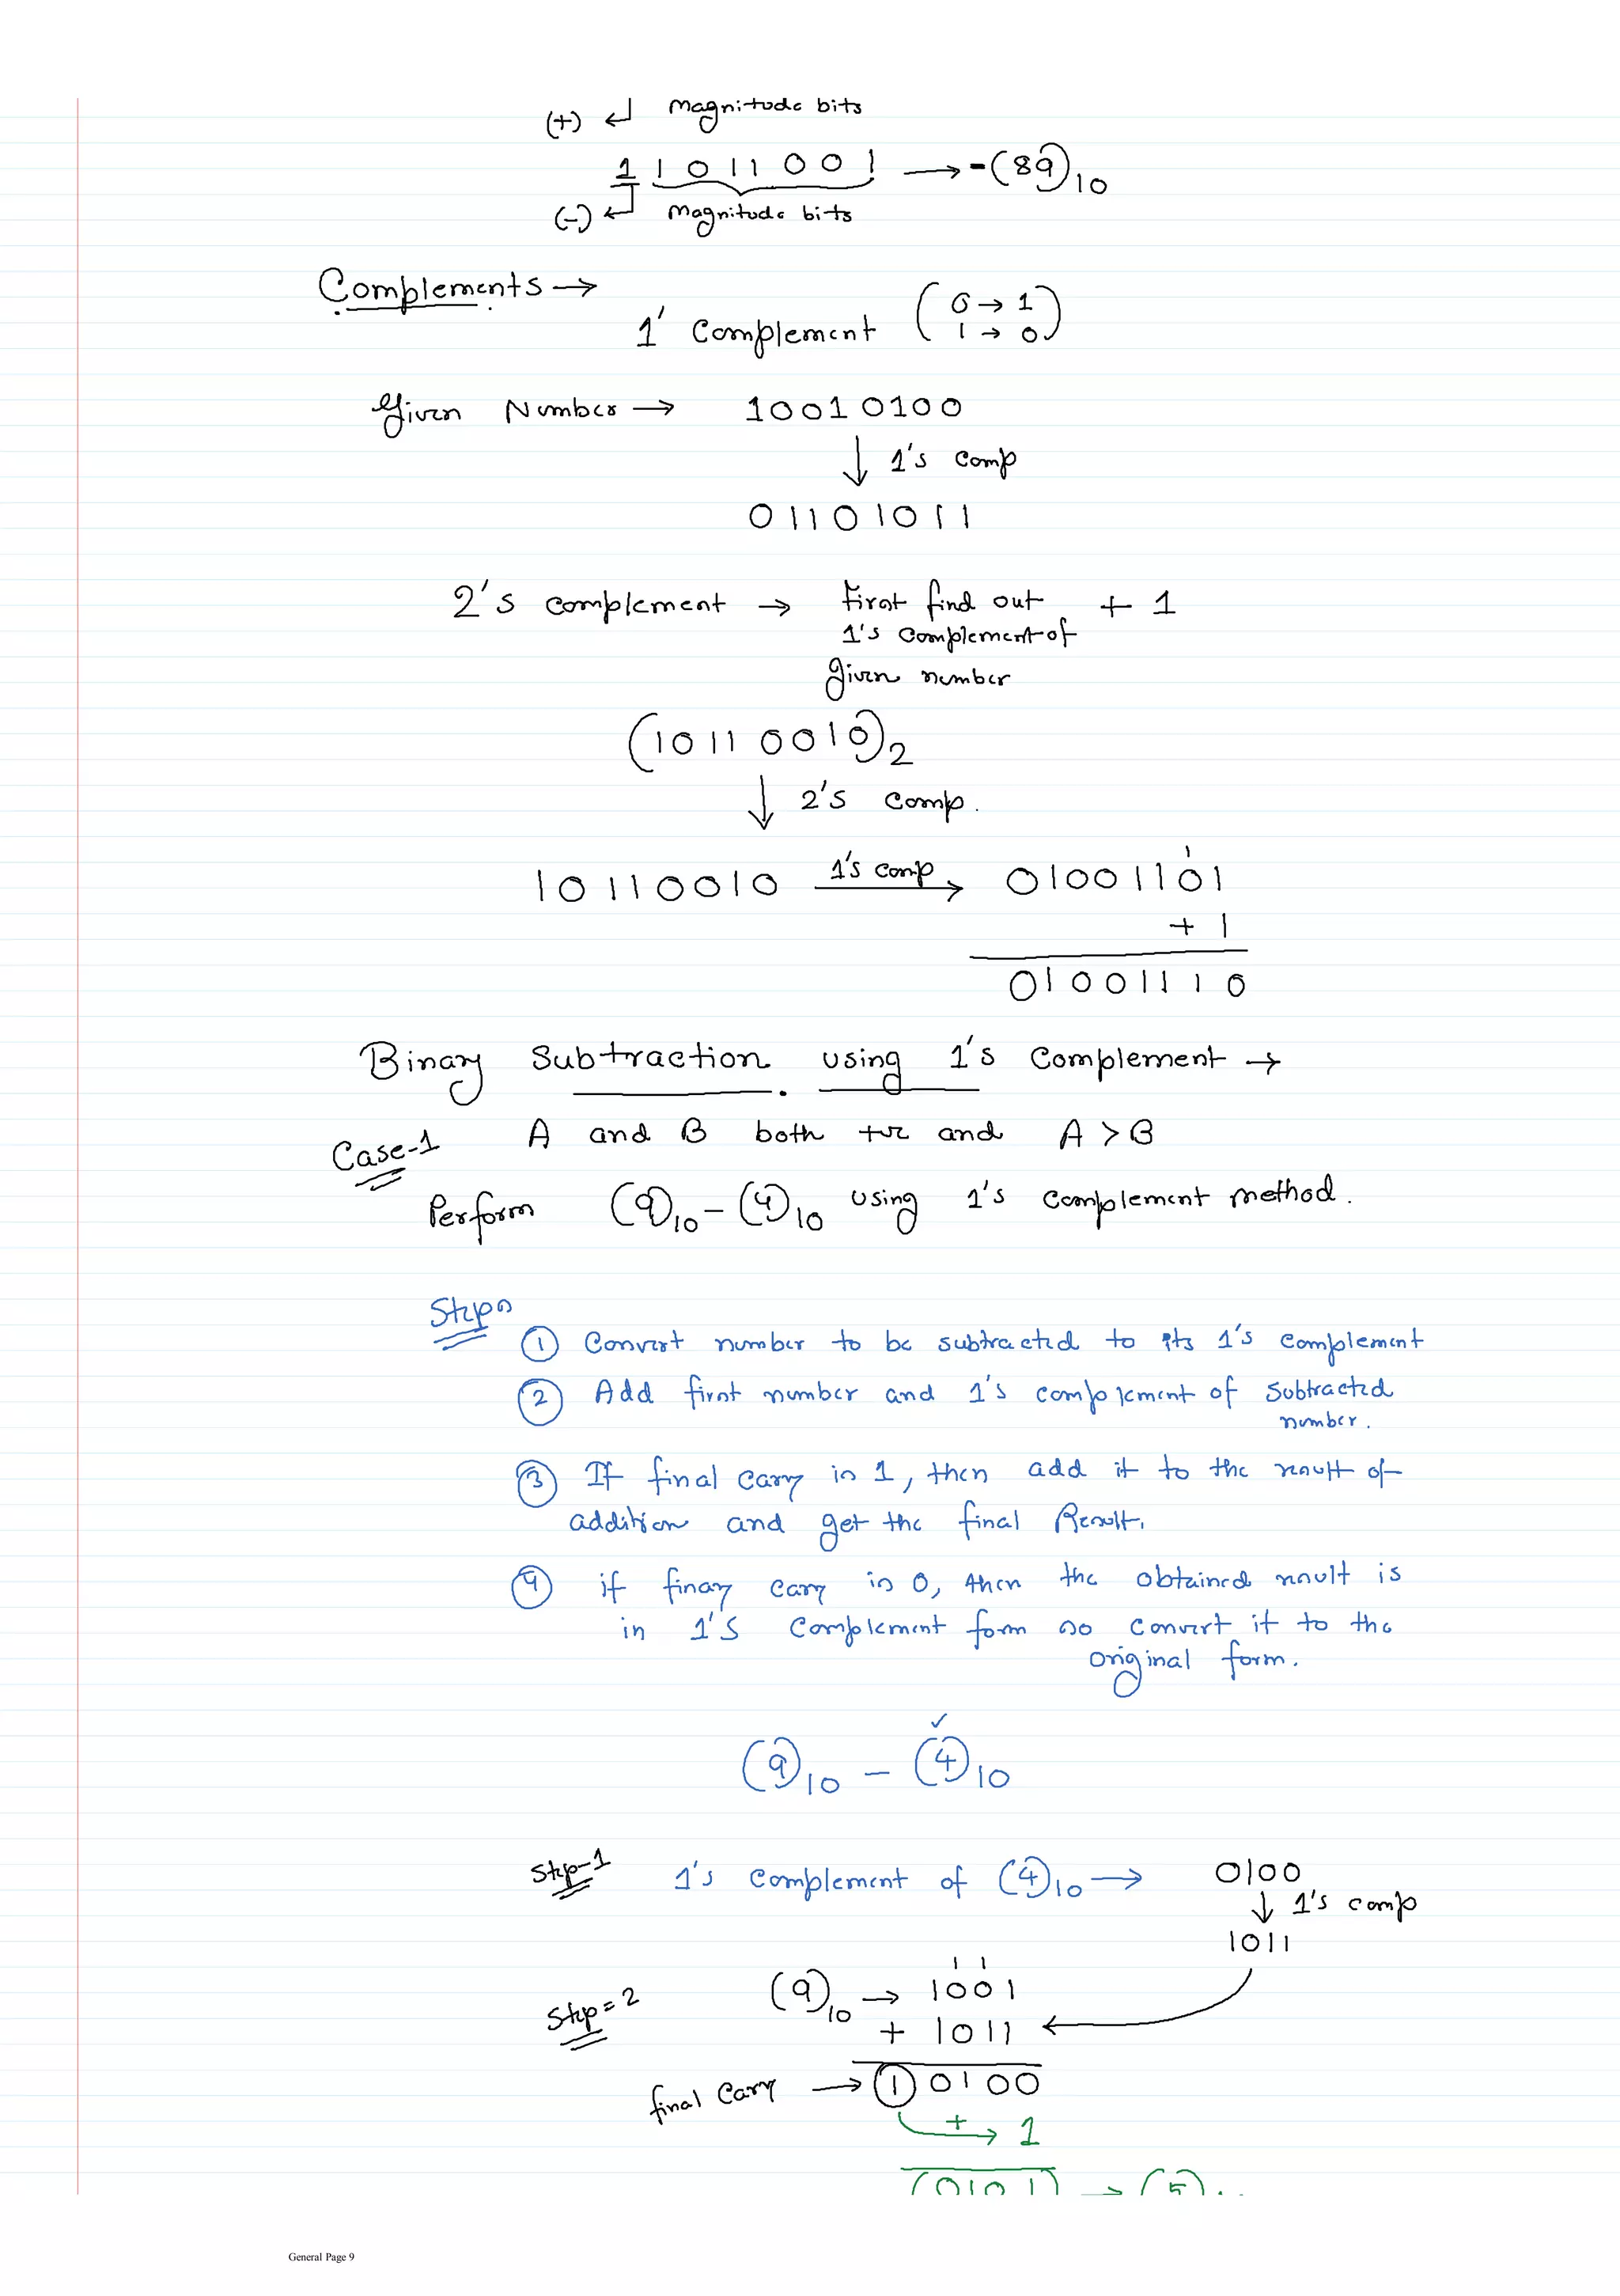 (+) ↲ Magnitude bits
1 1 0 1 1 0 0 1 → -(89)10
(-) ↲ Magnitude bits
Complements →
1' Complement (0 → 1
1 → 0)
Given Number → 10010100
↓ 1's comp
01101011
2's complement → First find out + 1
1's complement of
given number
(10110010)2
↓ 2's comp.
1
10110010 1's comp → 01001101
+ 1
01001110
Binary Subtraction using 1's Complement →
Case-1 A and B both +ve and A > B
Perform (9)10 - (4)10 using 1's complement method.
Steps
① Convert number to be subtracted to its 1's complement
② Add first number and 1's complement of subtracted
number.
③ If final carry is 1, then add it to the result of
addition and get the final Result.
④ if finay carry is 0, then the obtained result is
in 1's Complement form so convert it to the
original form.
✓
(9)10 - (4)10
Step-1 1's complement of (4)10 → 0100
↓ 1's comp
1011
1 1
Step=2 (9)10 → 1001
+ 1011 ←
final carry → ① 0100
+ → 1
(0101) → (5)
General Page 9